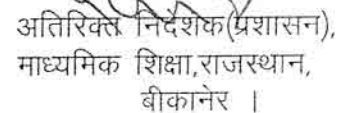 अतिरिक्त निदेशक(प्रशासन),
माध्यमिक शिक्षा,राजस्थान,
बीकानेर ।